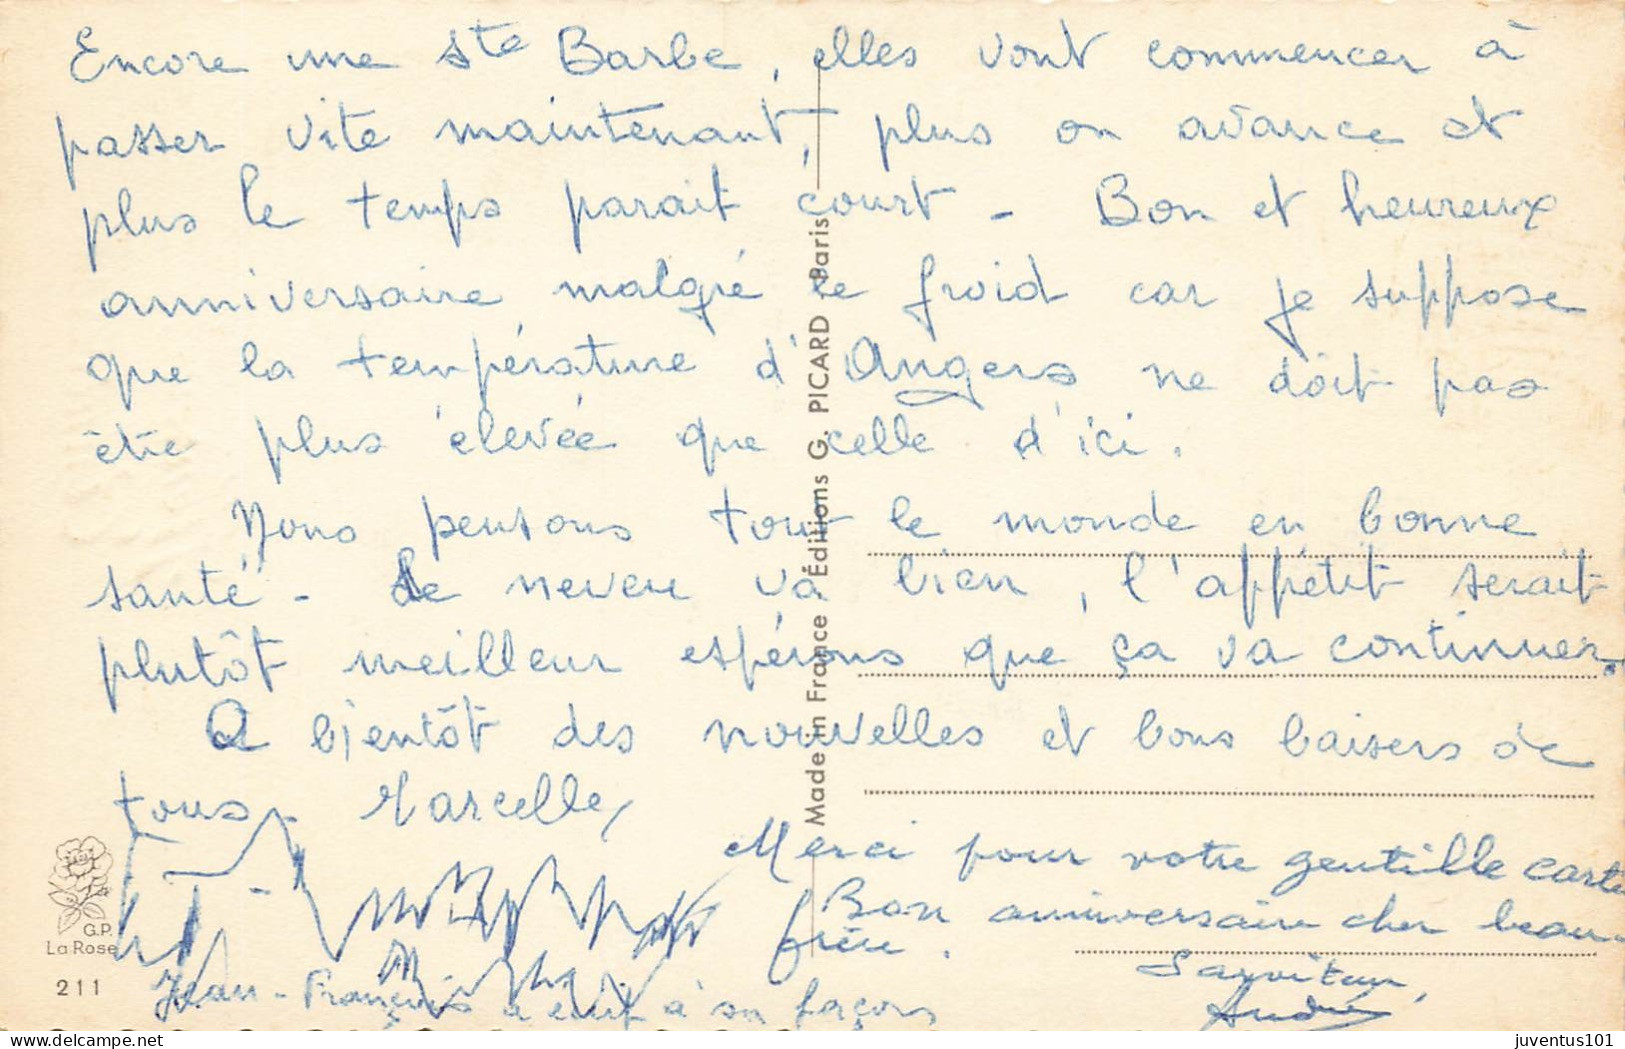 Encore une Ste Barbe, elles vont commencer à
passer vite maintenant, plus on avance et
plus le temps parait court - Bon et heureux
anniversaire malgré le froid car je suppose
que la température d'Angers ne doit pas
être plus élevée que celle d'ici.
Nous pensons tout le monde en bonne
santé - Le neveu va bien, l'appétit serait
plutôt meilleur espérons que ça va continuer.
A bientôt des nouvelles et bons baisers de
tous - Marcelle
Merci pour votre gentille carte
Bon anniversaire cher beau-
frère.
Jean-François a écrit à sa façon
André
Made in France Éditions G. PICARD Paris
G.P.
La Rose
211
juventus101